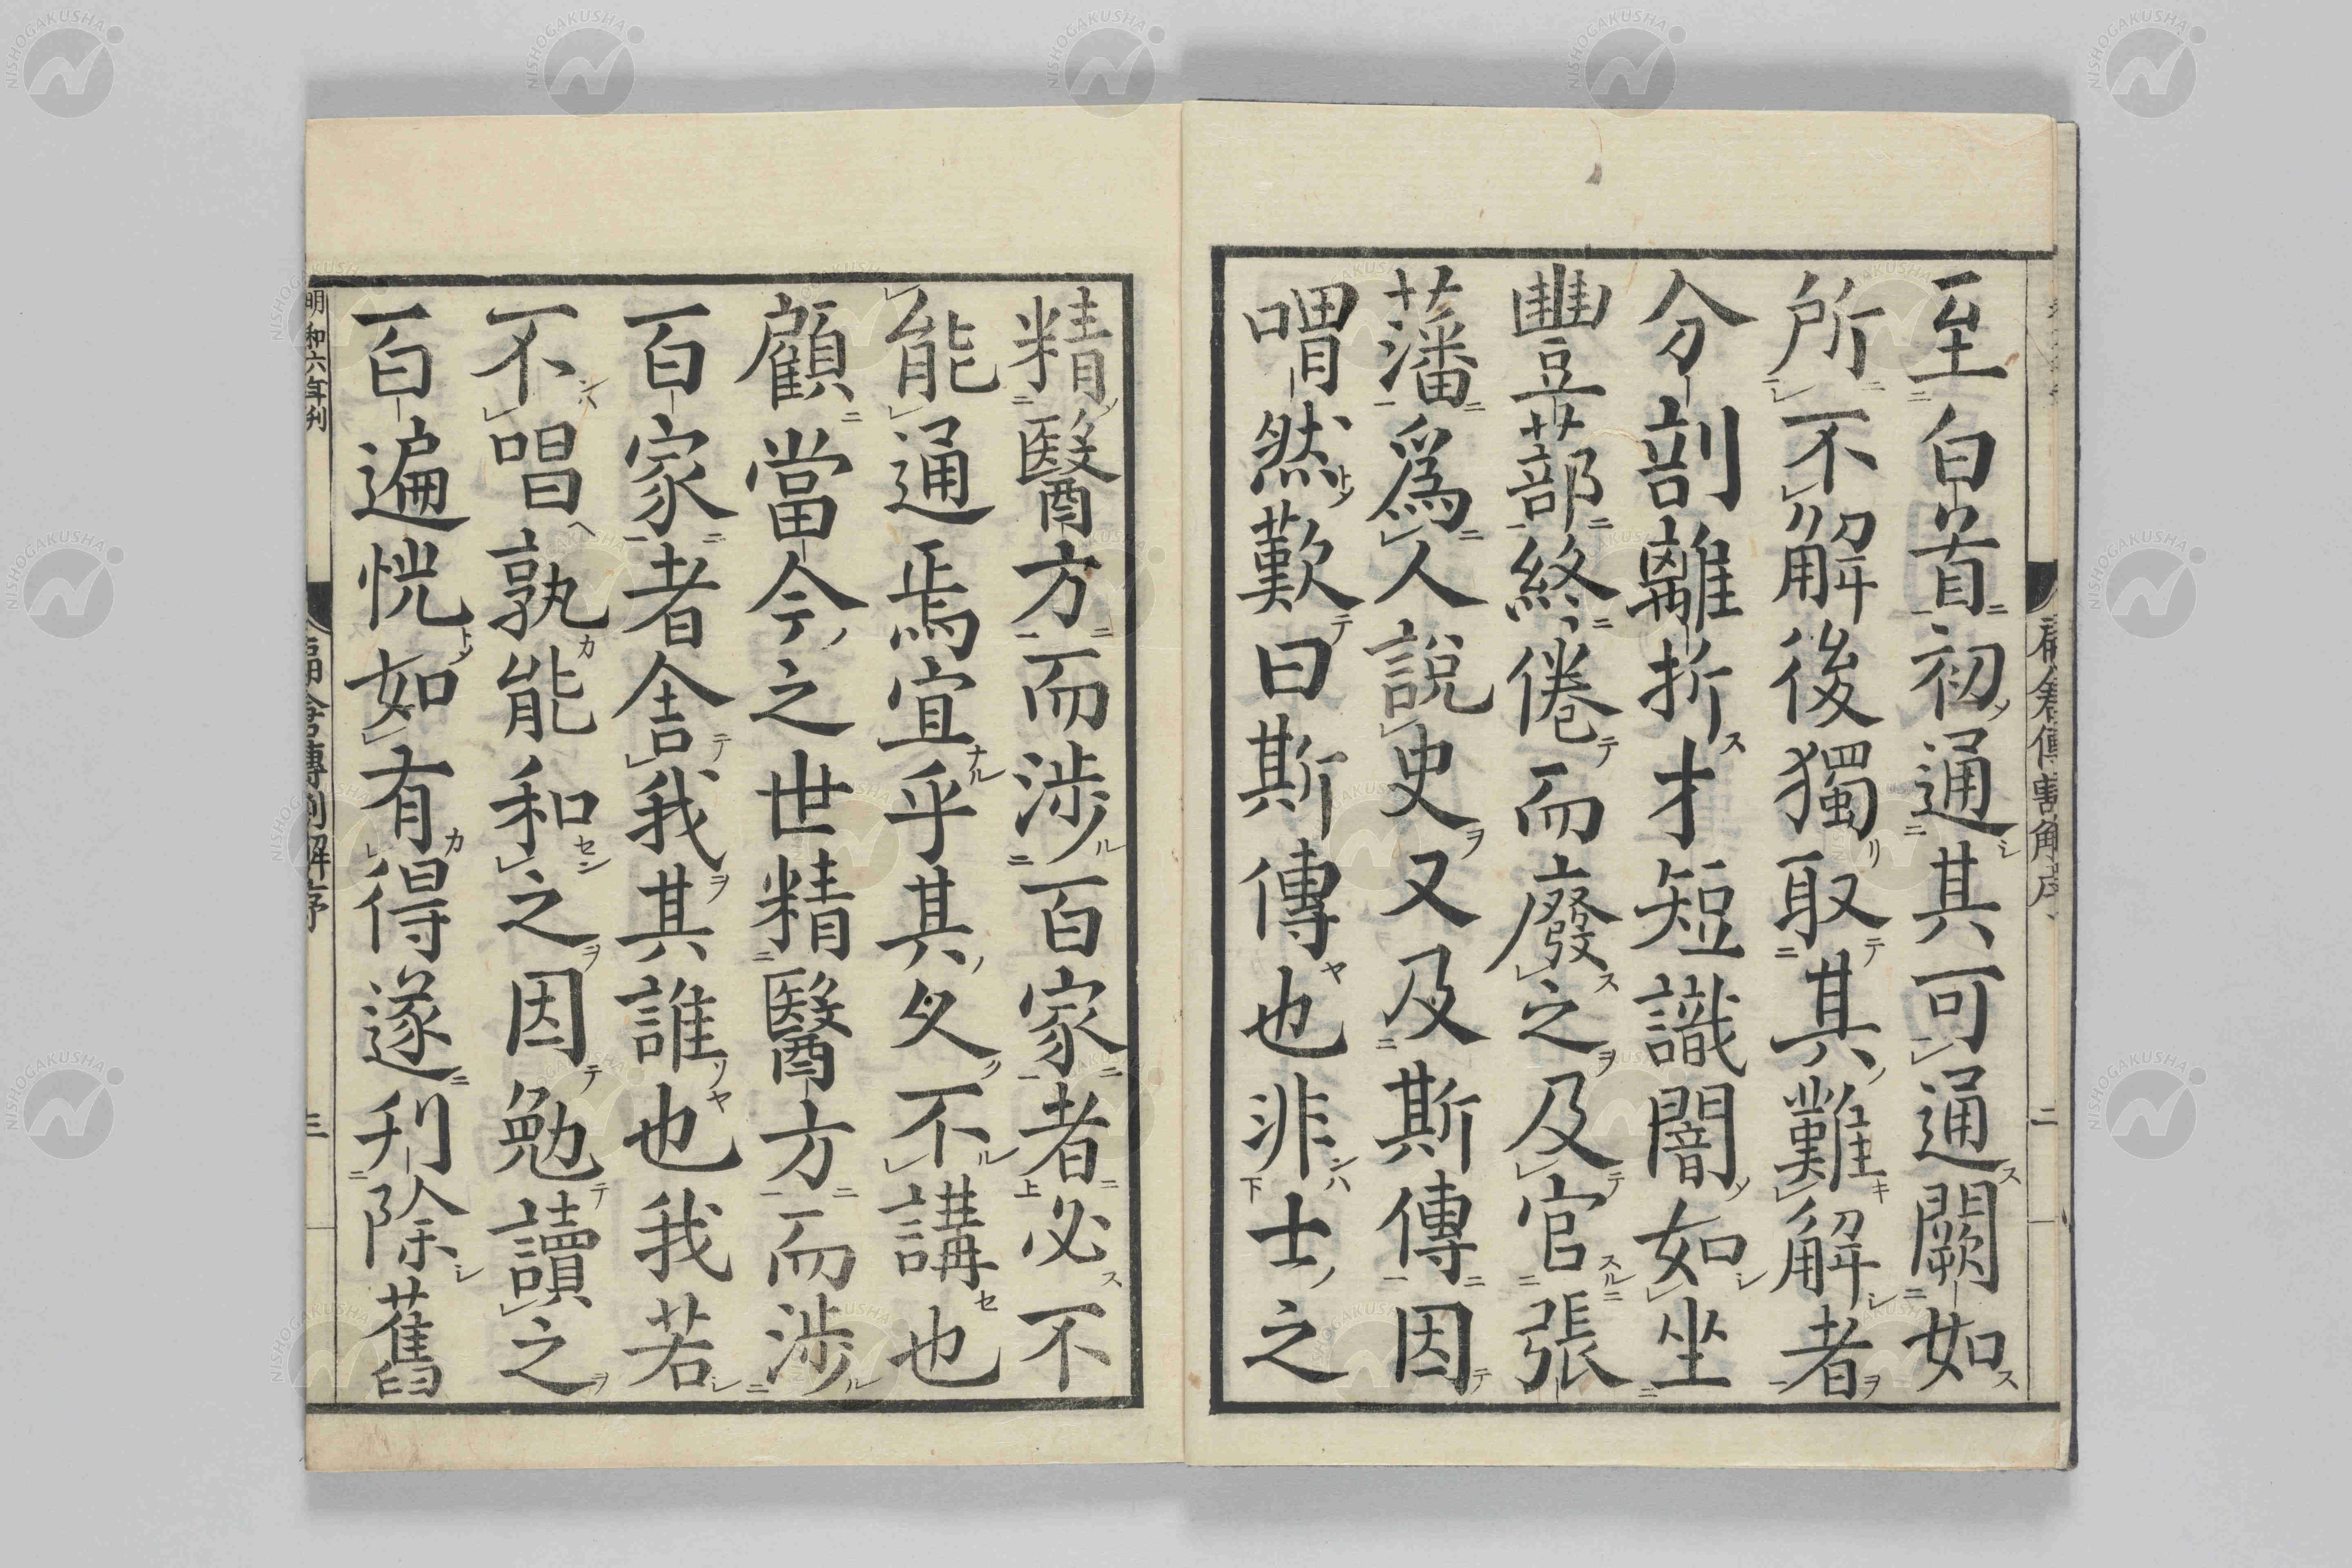 至白首初通其可通闕如
所不解後獨取其難解者
分剖離折才短識闇如坐
豐蔀終倦而廢之及官張
藩爲人說史又及斯傳因
喟然歎曰斯傳也非士之
扁倉傳割解序
二
精醫方而涉百家者必不
能通焉宜乎其久不講也
顧當今之世精醫方而涉
百家者舍我其誰也我若
不唱孰能和之因勉讀之
百遍恍如有得遂刋除舊
明和六年刋
扁倉傳割解序
三
NISHOGAKUSHA